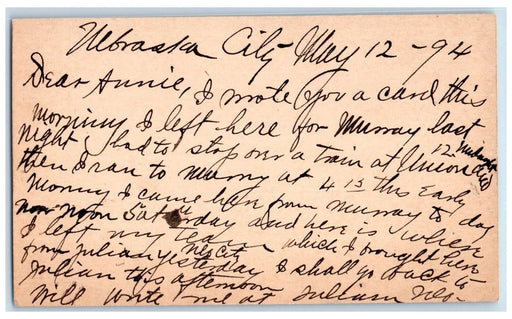 Nebraska City May 12 - 94
Dear Annie, I wrote you a card this
morning I left here for Murray last
night I had to stop over a train at Union
12
then I ran to Murray at 4 13 this Early
Morning I came here from Murray to day
now noon Saturday and here is where
I left my which I brought here
from Julian yesterday I shall go back to
Julian this afternoon
will write me at Julian Neb-